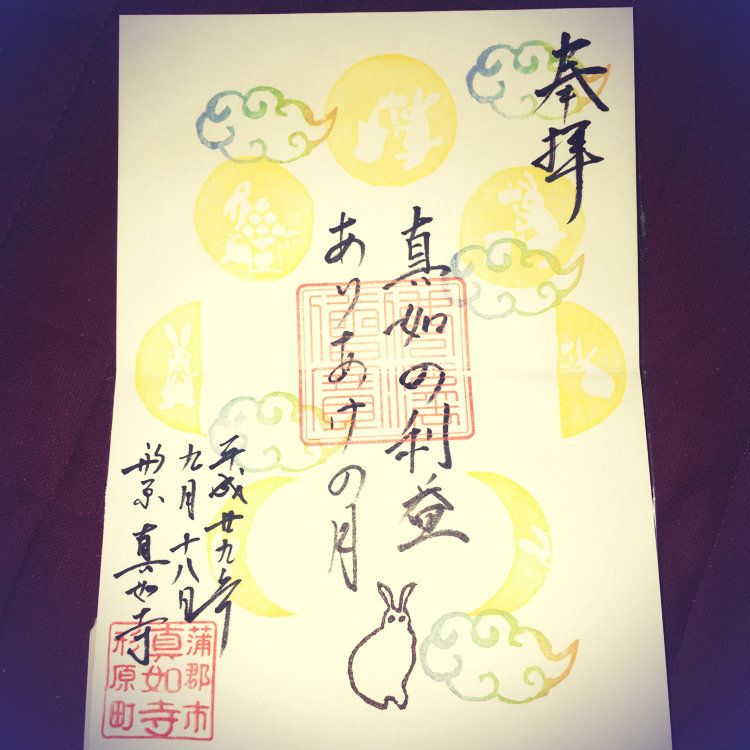 奉拝
真如の利益
ありあけの月
平成廿九年
九月十八日
形原 真如寺
蒲郡市
真如寺
形原町